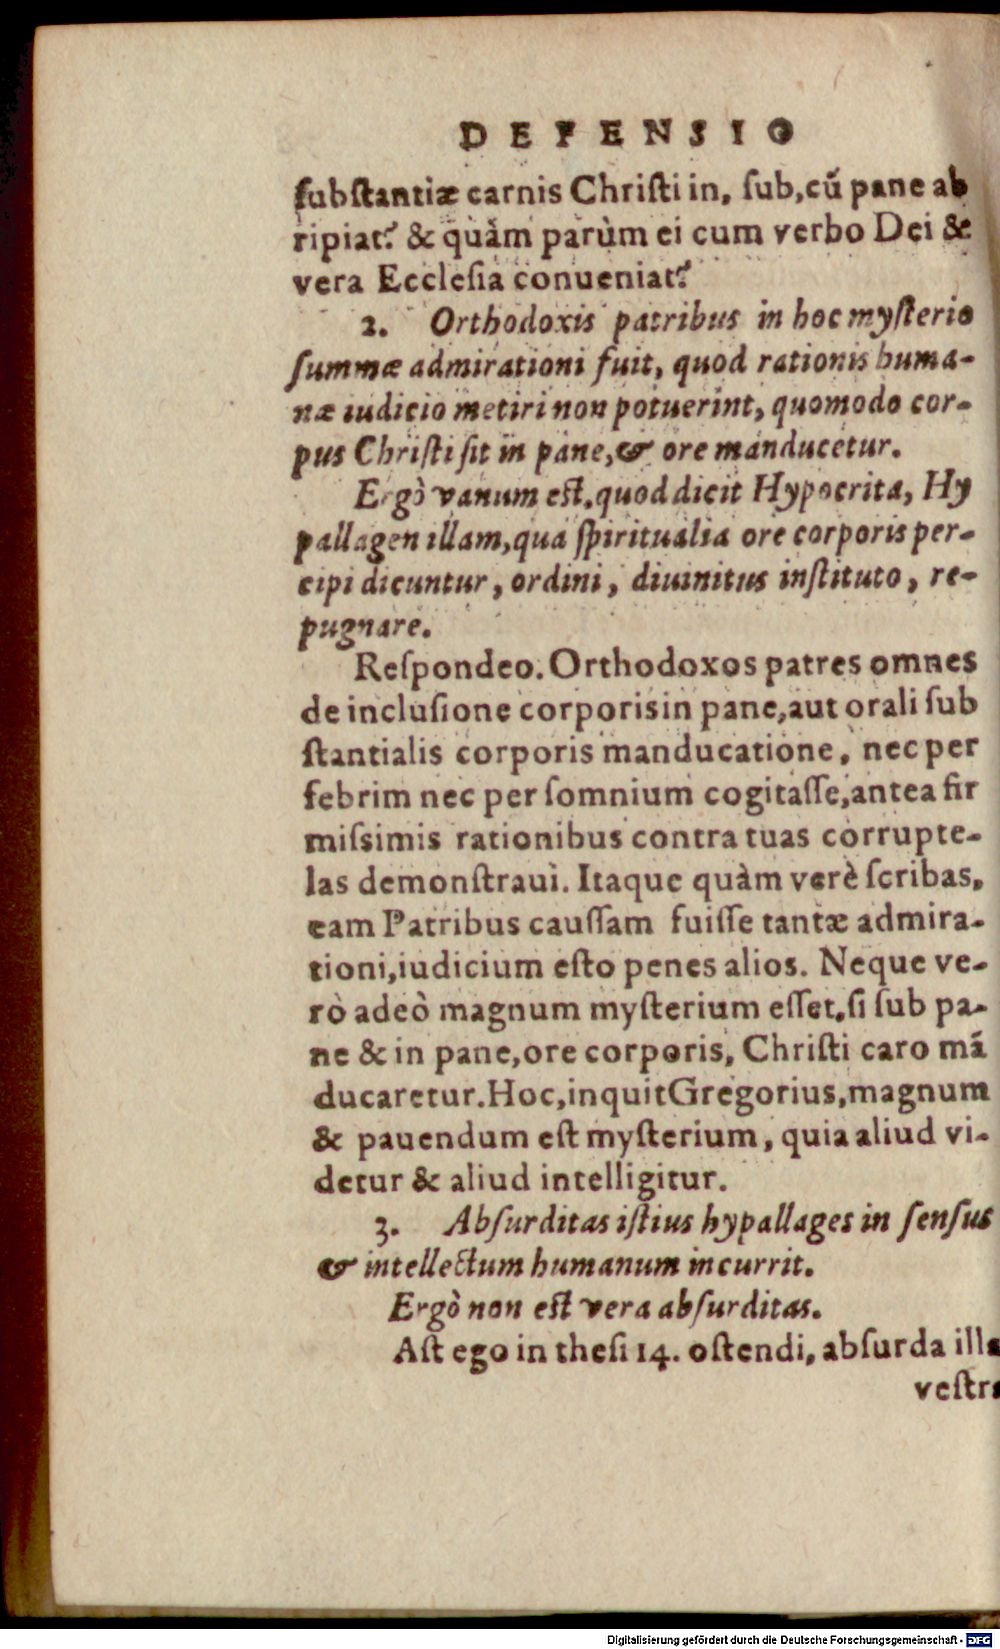 DEFENSIO
ſubſtantiæ carnis Chriſti in, ſub, cū pane ab
ripiat? & quàm parùm ei cum verbo Dei &
vera Eccleſia conueniat?
2. Orthodoxis patribus in hoc myſterio
ſummæ admirationi fuit, quod rationis huma-
næ iudicio metiri non potuerint, quomodo cor-
pus Chriſti ſit in pane, & ore manducetur.
Ergò vanum eſt, quod dicit Hypocrita, Hy
pallagen illam, qua ſpiritualia ore corporis per-
cipi dicuntur, ordini, diuinitus inſtituto, re-
pugnare.
Reſpondeo. Orthodoxos patres omnes
de incluſione corporis in pane, aut orali ſub
ſtantialis corporis manducatione, nec per
febrim nec per ſomnium cogitaſſe, antea fir
miſsimis rationibus contra tuas corrupte-
las demonſtraui. Itaque quàm verè ſcribas,
eam Patribus cauſſam fuiſſe tantæ admira-
tioni, iudicium eſto penes alios. Neque ve-
rò adeò magnum myſterium eſſet, ſi ſub pa-
ne & in pane, ore corporis, Chriſti caro mā
ducaretur. Hoc, inquit Gregorius, magnum
& pauendum eſt myſterium, quia aliud vi-
detur & aliud intelligitur.
3. Abſurditas iſtius hypallages in ſenſus
& intellectum humanum incurrit.
Ergò non eſt vera abſurditas.
Aſt ego in theſi 14. oſtendi, abſurda illa
veſtra
Digitalisierung gefördert durch die Deutsche Forschungsgemeinschaft - DFG